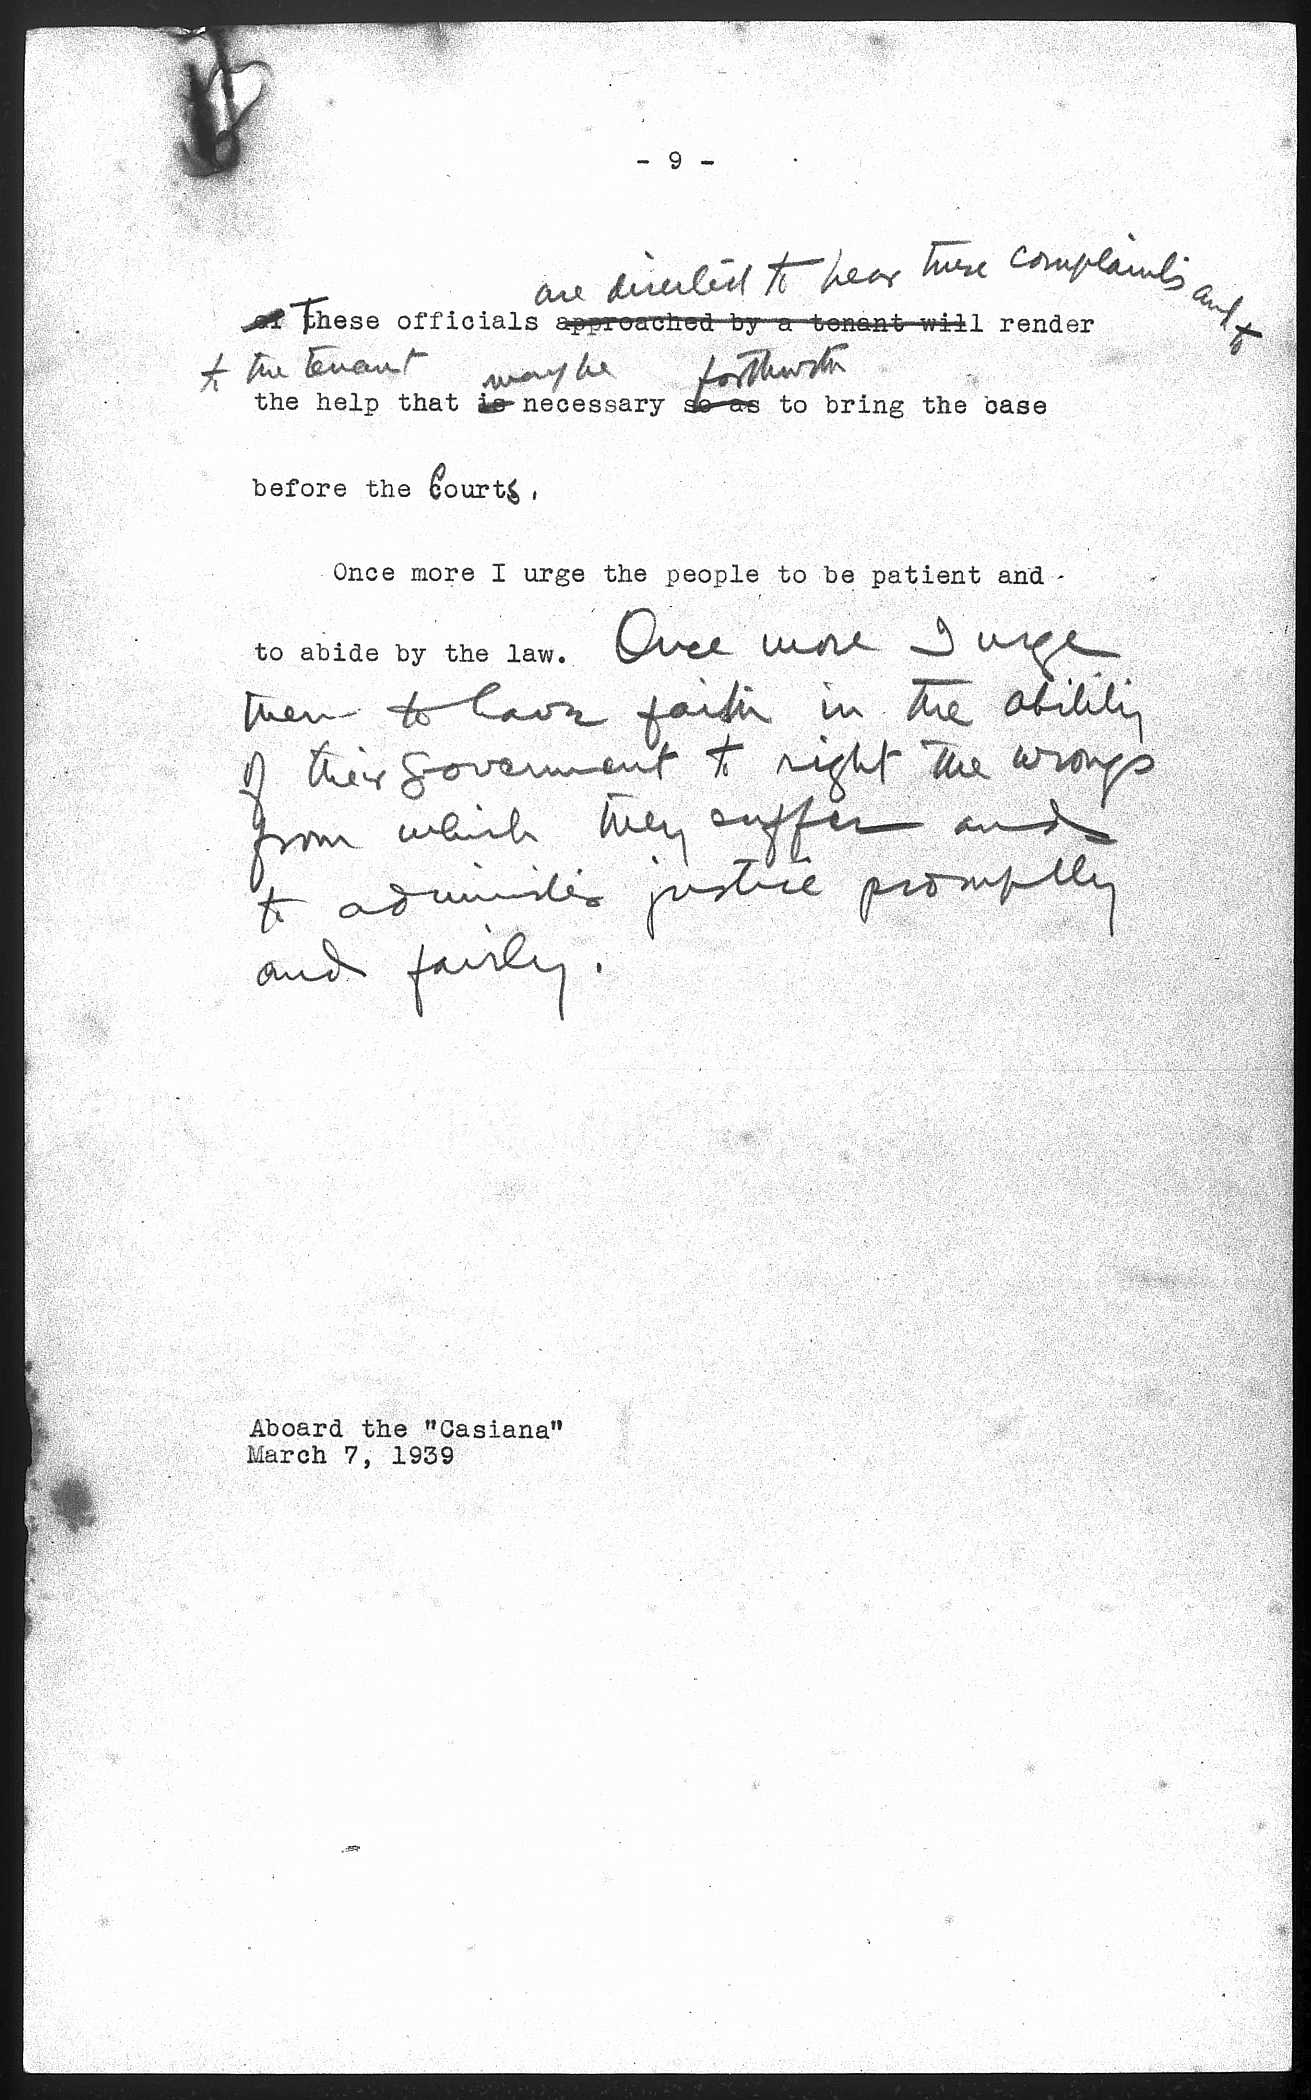 - 9 -
are directed to hear these complaints and to
of These officials approached by a tenant will render
to the tenant may be forthwith
the help that is necessary so as to bring the case
before the Courts.
Once more I urge the people to be patient and
to abide by the law. Once more I urge
them to have faith in the ability
of their government to right the wrongs
from which they suffer and
to administer justice promptly
and fairly.
Aboard the "Casiana"
March 7, 1939